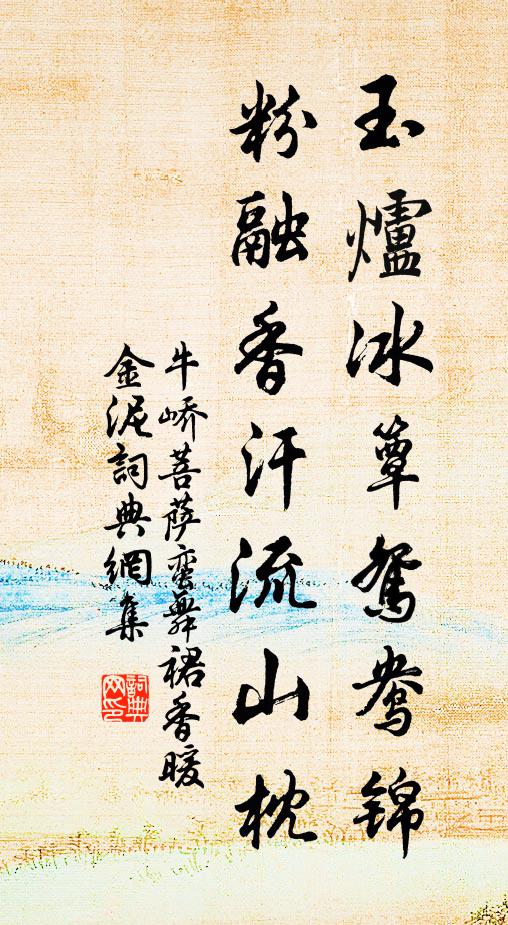 玉爐冰簟鴛鴦錦
粉融香汗流山枕
牛嶠菩薩蠻舞裙香暖
金泥詞典網集
詞典
网印